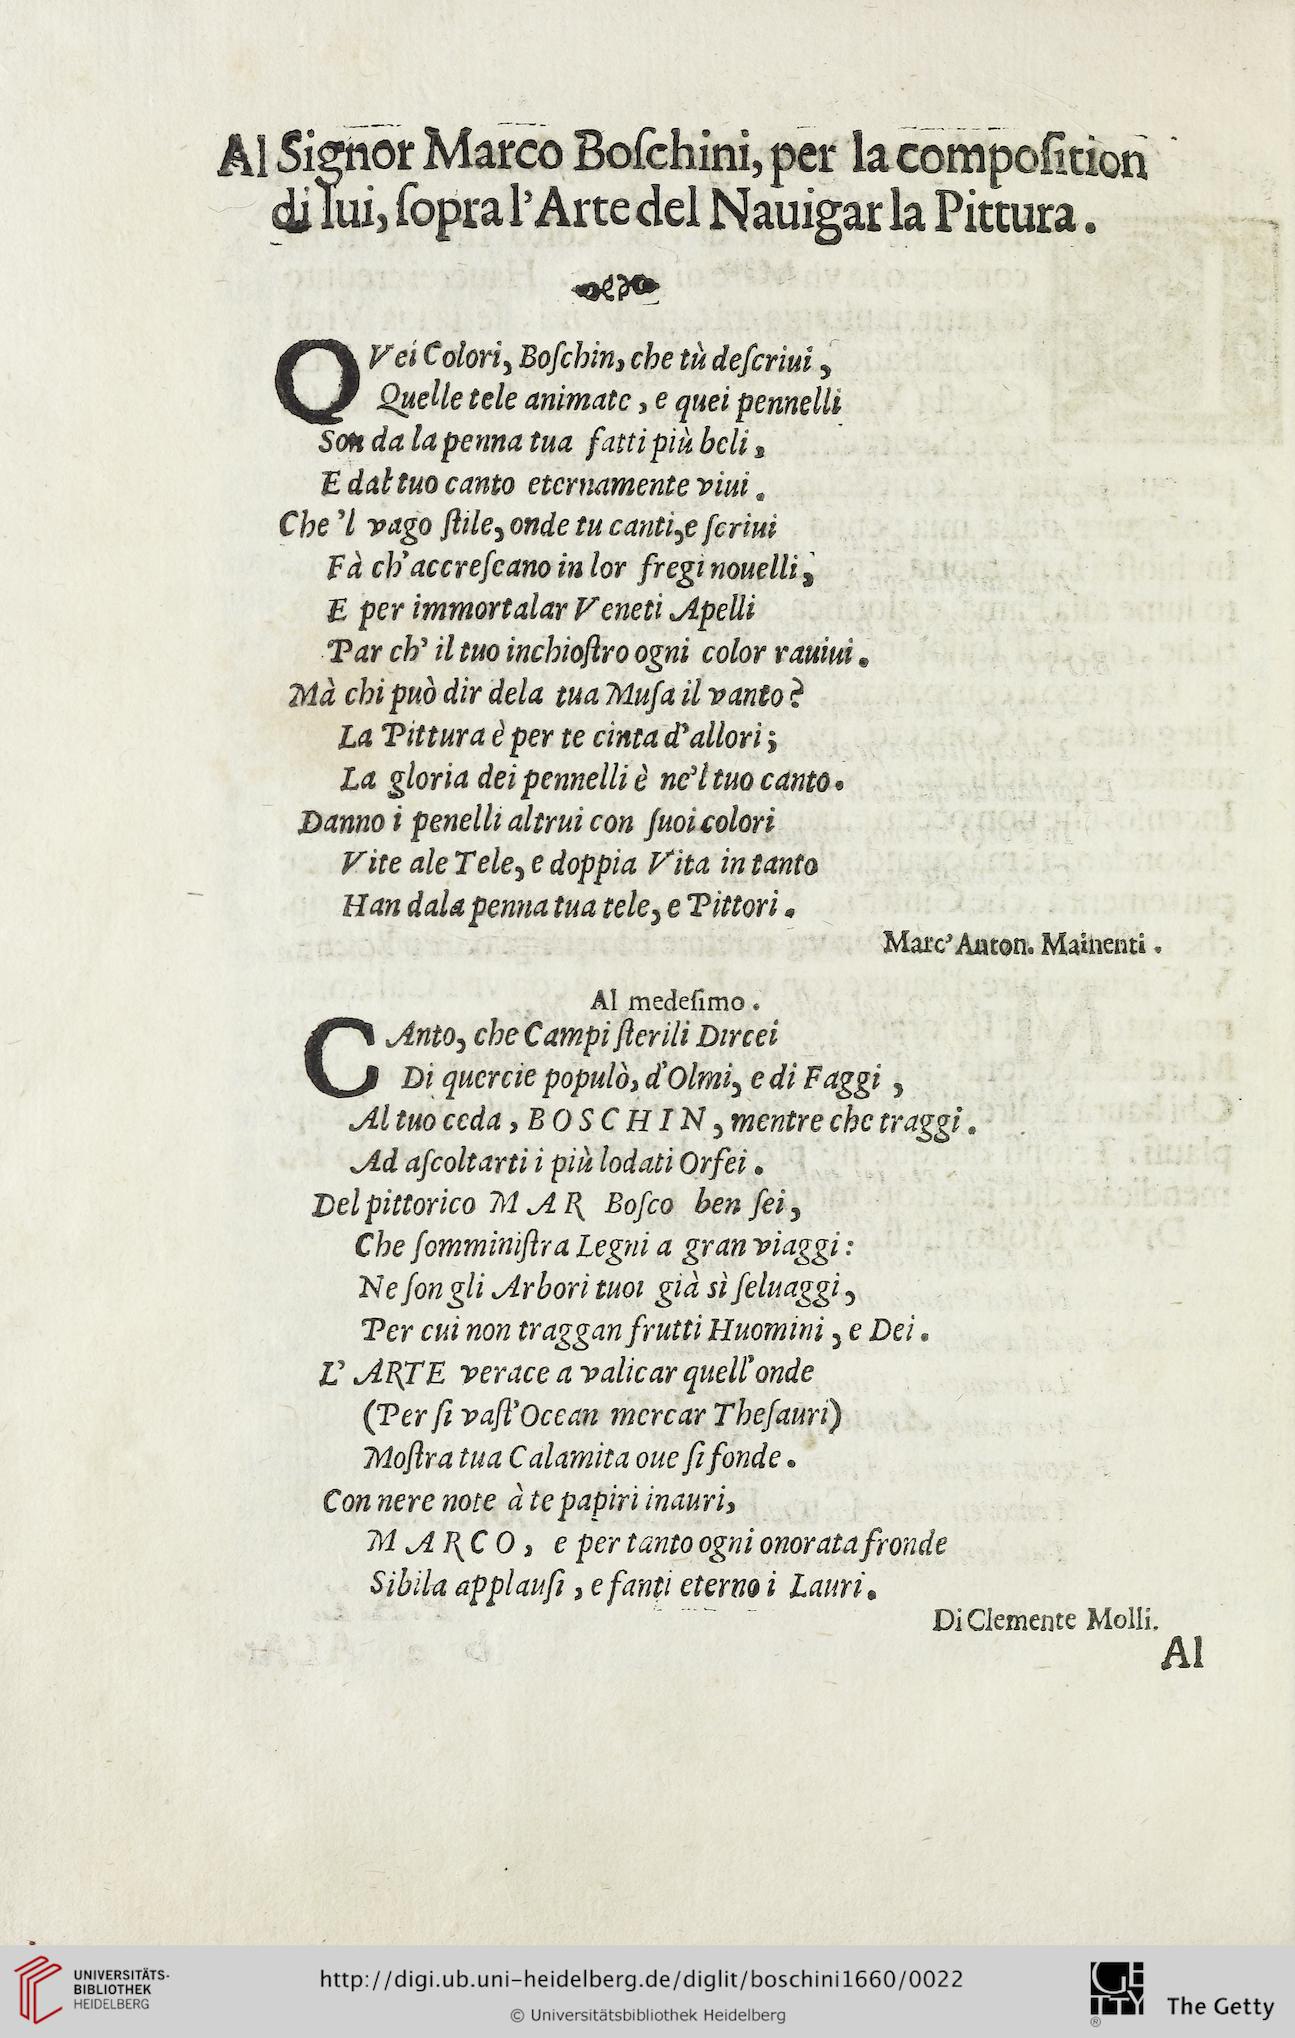 Al Signor Marco Boſchini, per la compoſition
di lui, ſopra l'Arte del Nauigar la Pittura.
QVei Colori, Boſchin, che tù deſcriui,
Quelle tele animate, e quei pennelli
Son da la penna tua fatti più beli,
E dal tuo canto eternamente viui.
Che 'l vago ſtile, onde tu canti, e ſcriui
Fà ch' accreſcano in lor fregi nouelli,
E per immortalar Veneti Apelli
Par ch' il tuo inchioſtro ogni color rauiui.
Mà chi può dir dela tua Muſa il vanto?
La Pittura è per te cinta d'allori;
La gloria dei pennelli è ne'l tuo canto.
Danno i penelli altrui con ſuoi colori
Vite ale Tele, e doppia Vita in tanto
Han dala penna tua tele, e Pittori.
Marc' Anton. Mainenti.
Al medeſimo.
CAnto, che Campi ſterili Dircei
Di quercie populò, d'Olmi, e di Faggi,
Al tuo ceda, BOSCHIN, mentre che traggi.
Ad aſcoltarti i più lodati Orfei.
Del pittorico MAR Boſco ben ſei,
Che ſomminiſtra Legni a gran viaggi:
Ne ſon gli Arbori tuoi già sì ſeluaggi,
Per cui non traggan frutti Huomini, e Dei.
L' ARTE verace a valicar quell'onde
(Per ſi vaſt'Ocean mercar Theſauri)
Moſtra tua Calamita oue ſi fonde.
Con nere note à te papiri inauri,
MARCO, e per tanto ogni onorata fronde
Sibila applauſi, e fanti eterno i Lauri.
Di Clemente Molli.
Al
UNIVERSITÄTS-
BIBLIOTHEK
HEIDELBERG
http://digi.ub.uni-heidelberg.de/diglit/boschini1660/0022
© Universitätsbibliothek Heidelberg
GETTY
®
The Getty